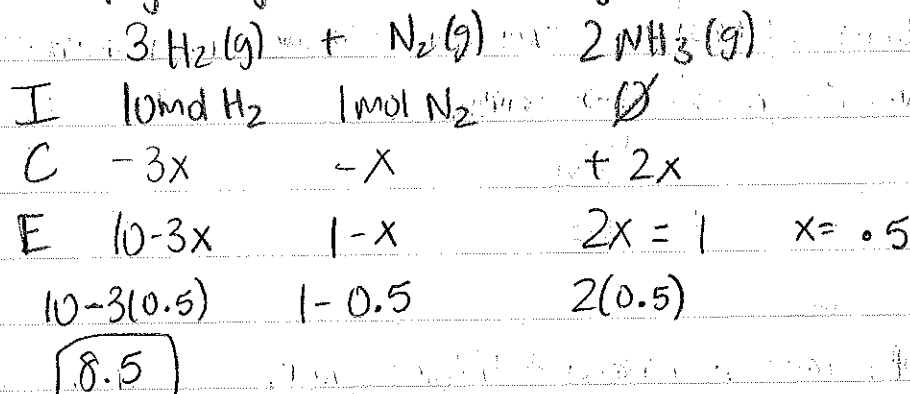 3 H₂(g) + N₂(g) 2NH₃(g)
I 10mol H₂ 1mol N₂ Ø
C -3x -x + 2x
E 10-3x 1-x 2x = 1 x= .5
10-3(0.5) 1-0.5 2(0.5)
8.5